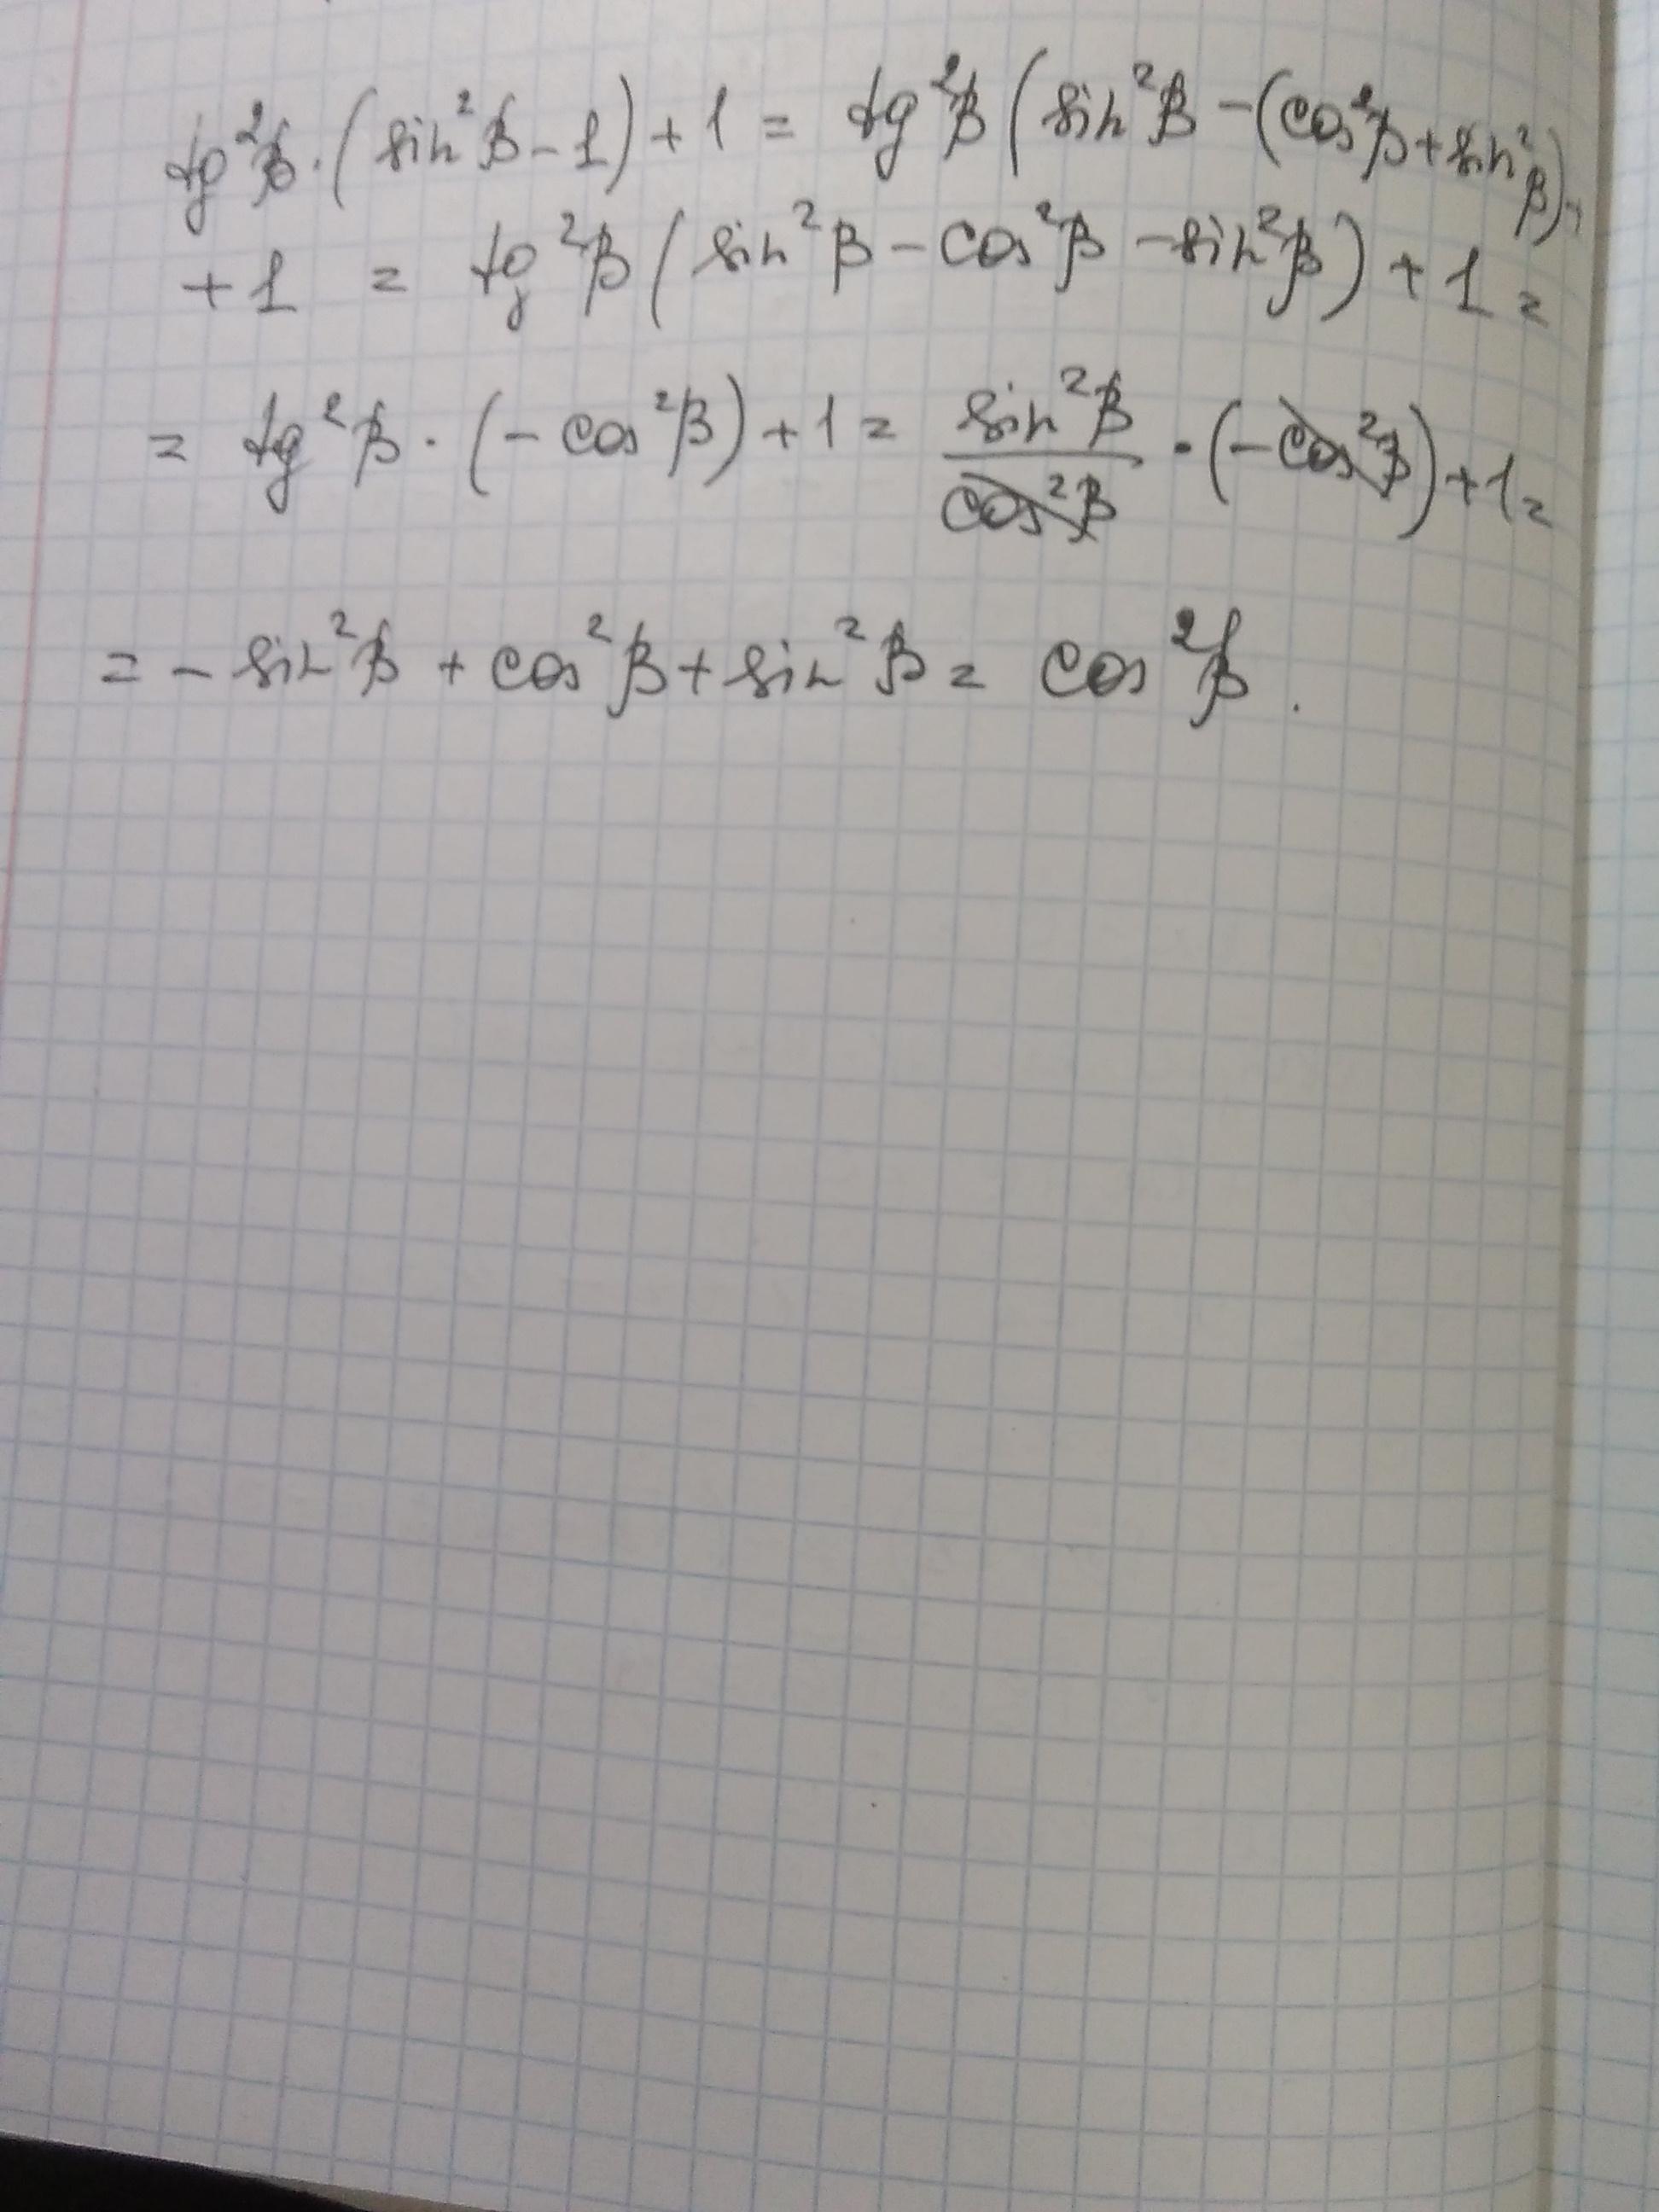 tg²β · (sin²β - 1) + 1 = tg²β (sin²β - (cos²β + sin²β)) +
+ 1 = tg²β (sin²β - cos²β - sin²β) + 1 =
= tg²β · (- cos²β) + 1 = sin²β / cos²β · (- cos²β) + 1 =
= - sin²β + cos²β + sin²β = cos²β.